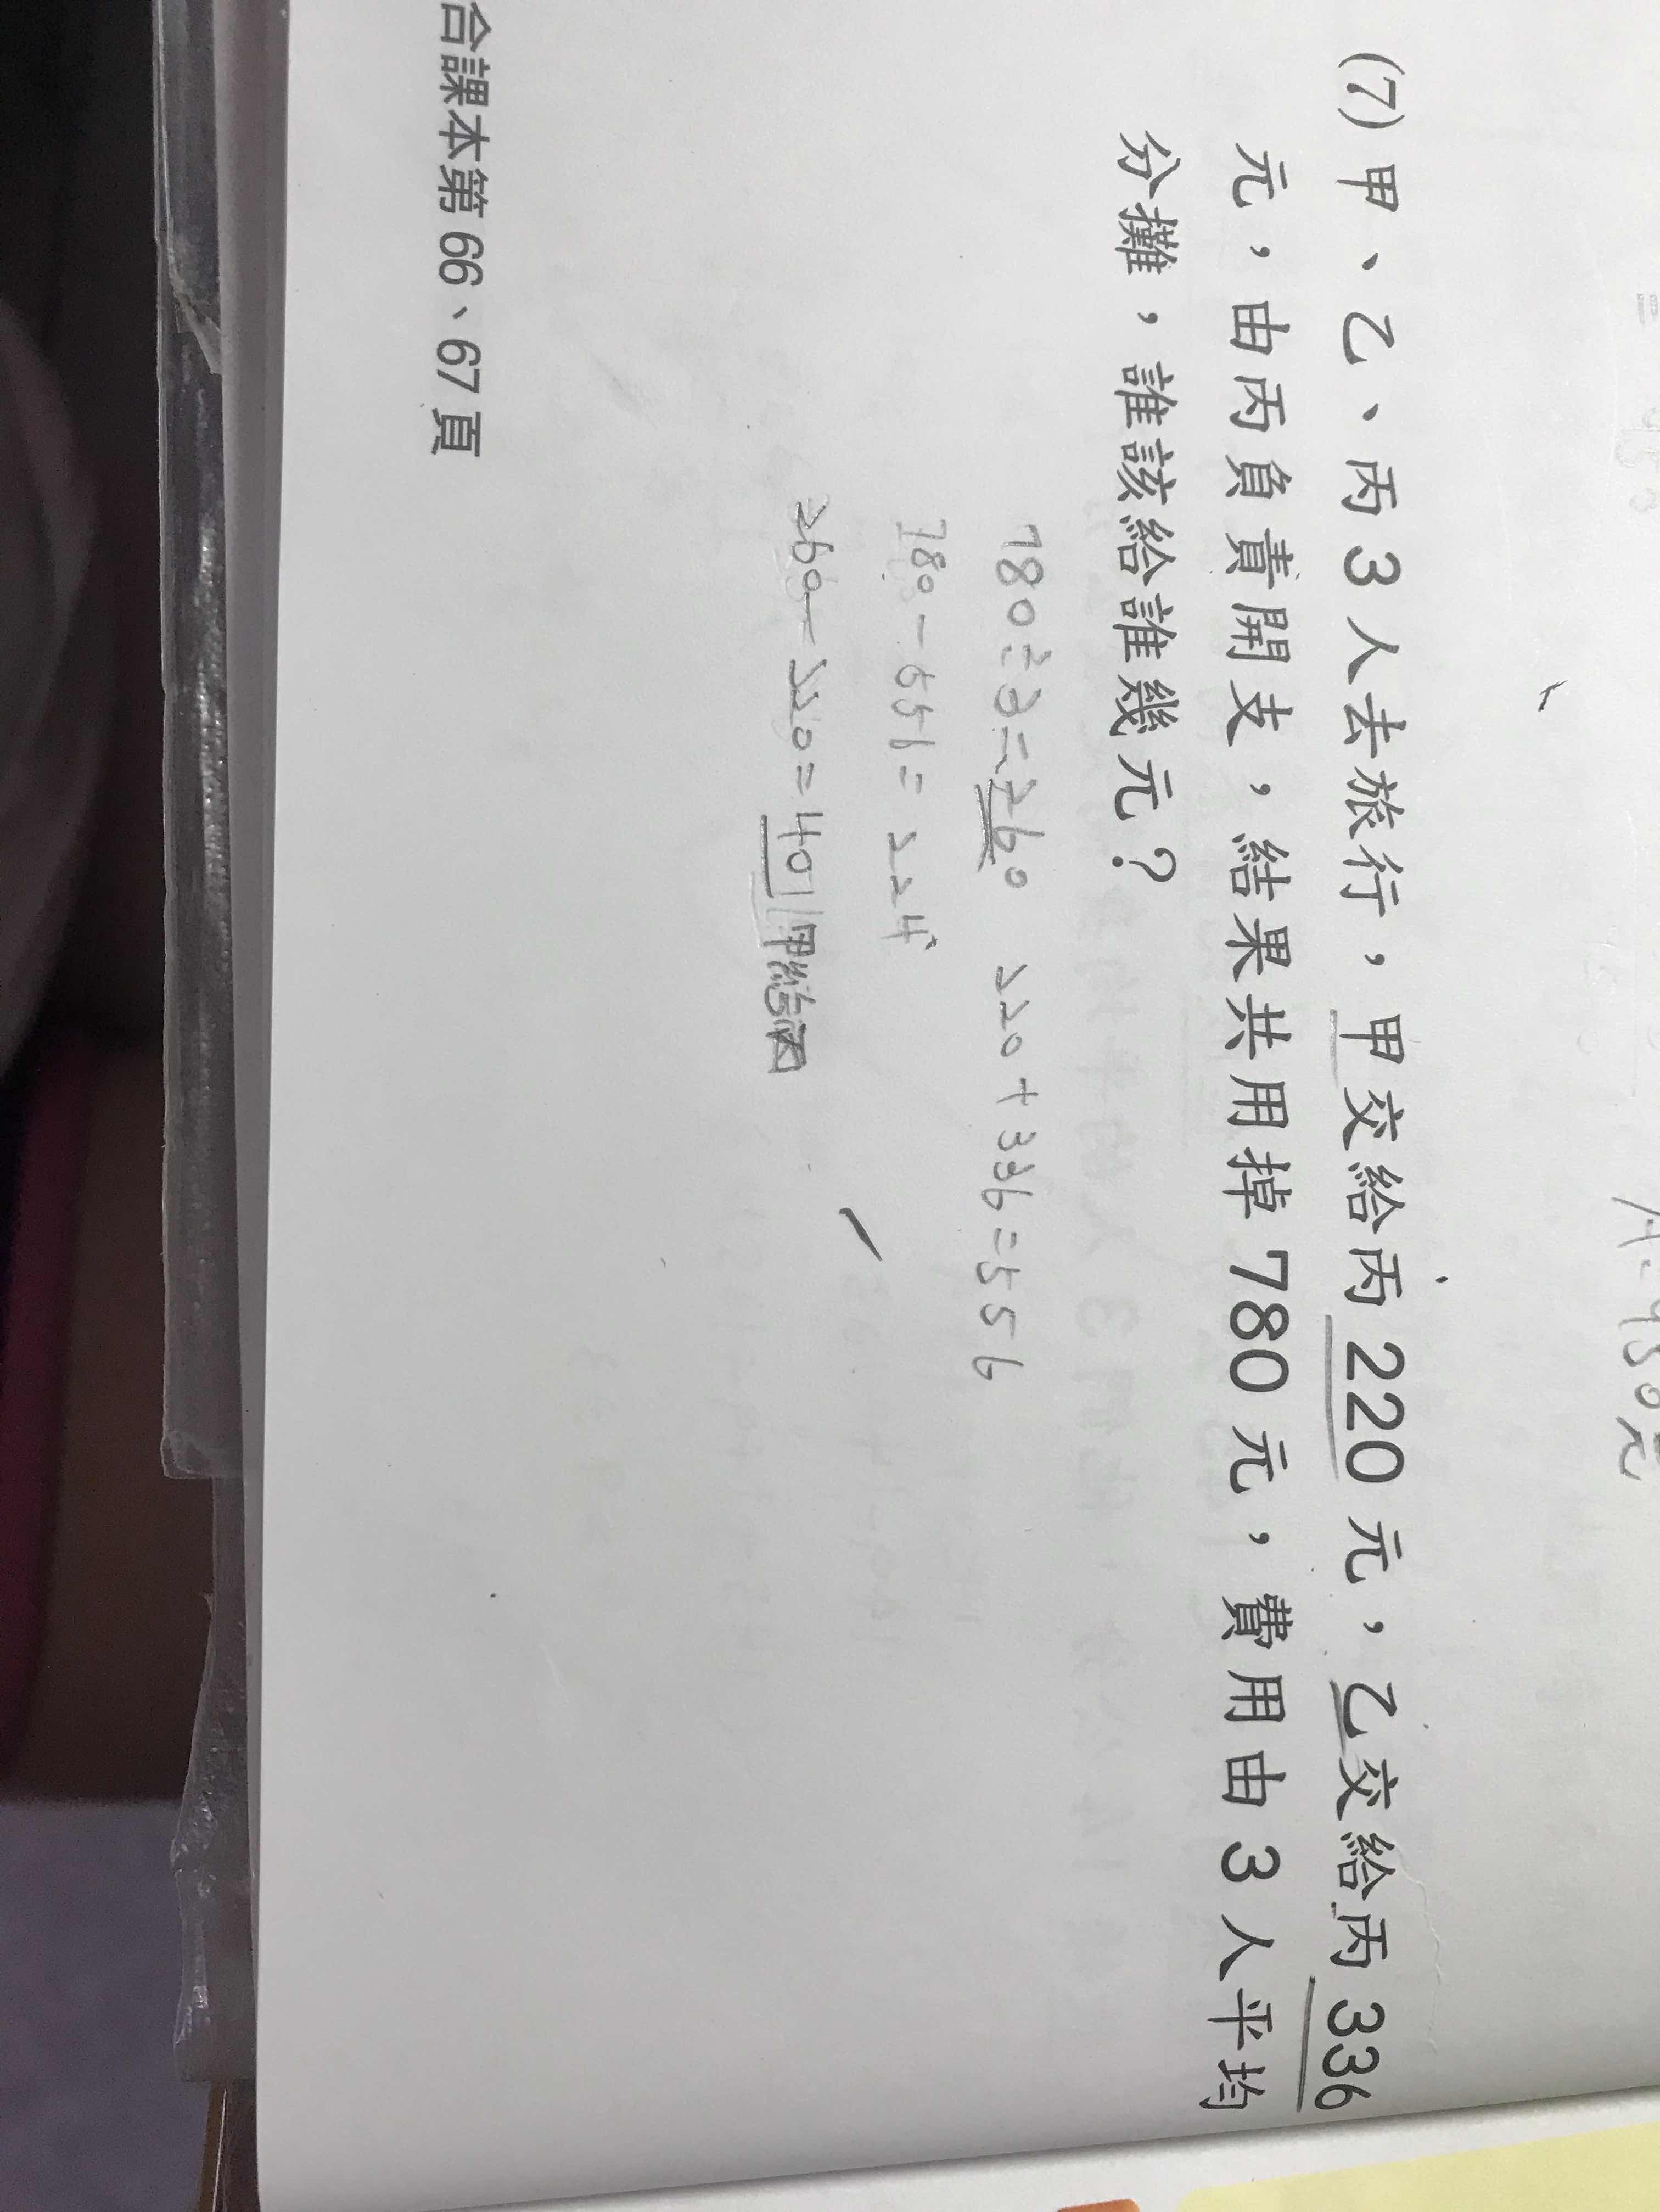 (7) 甲、乙、丙 3 人去旅行，甲交給丙 220 元，乙交給丙 336
元，由丙負責開支，結果共用掉 780 元，費用由 3 人平均
分攤，誰該給誰幾元？
780÷3=260 220+336=556
780-556=224
260-220=40 甲給丙
合課本第 66、67 頁